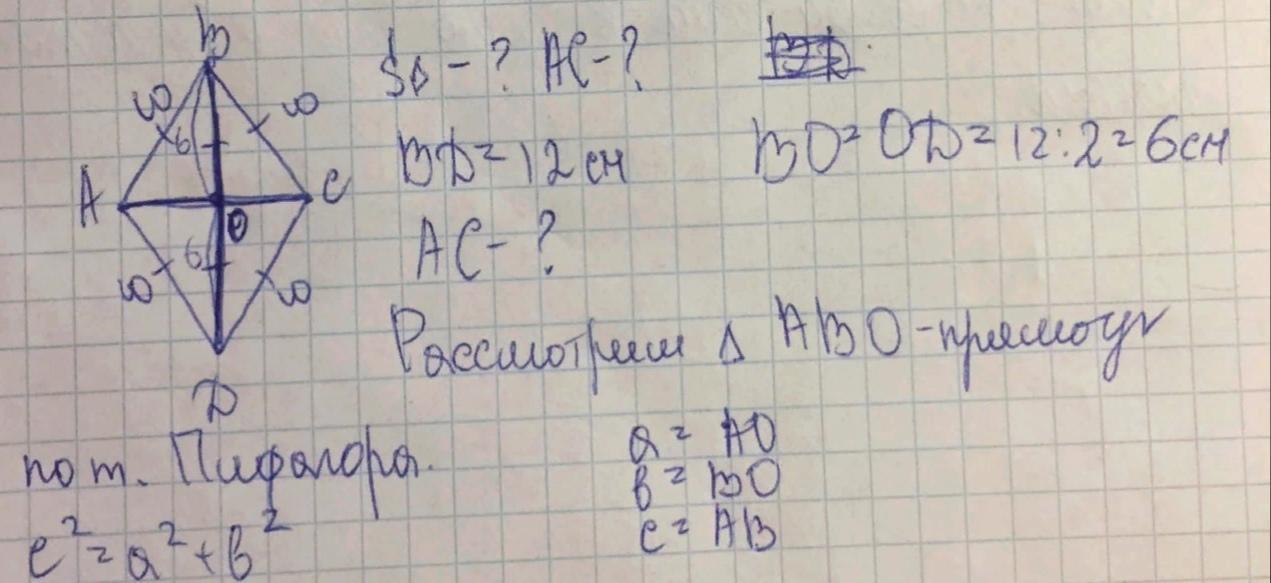 B
10 10
6
A C
O
6
10 10
D
S◊ - ? AC - ?
BD = 12 см
AC - ?
BO = OD = 12 : 2 = 6 см
Рассмотрим Δ ABO - прямоуг
по т. Пифагора.
c² = a² + b²
a = AO
b = BO
c = AB